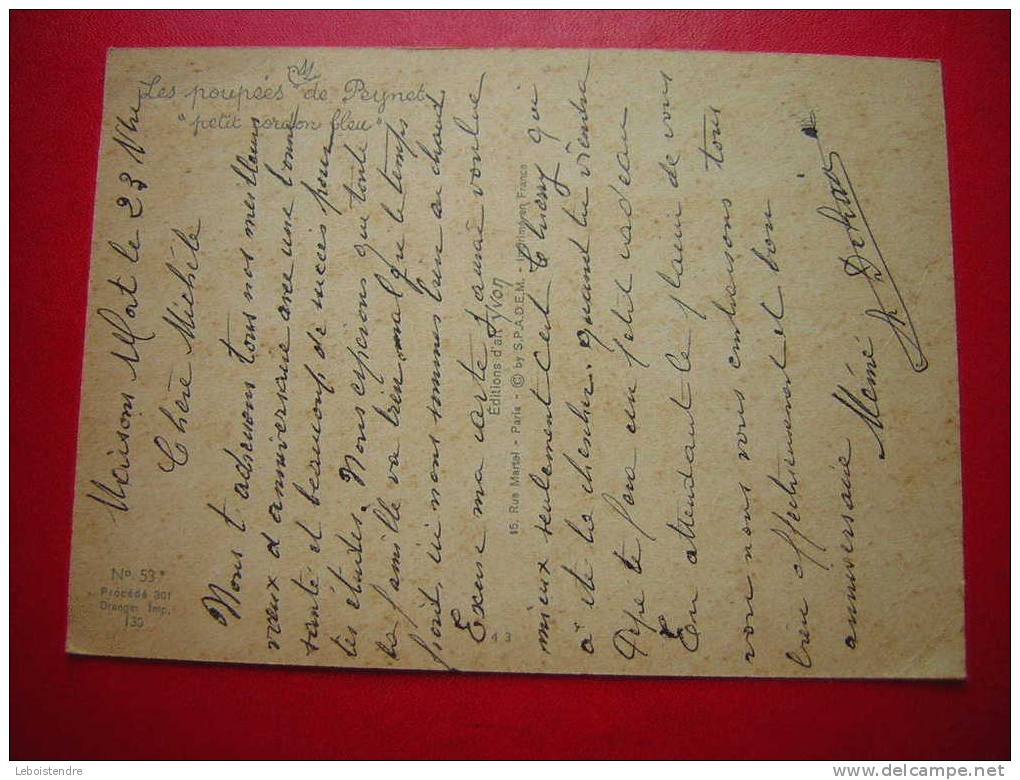 Les poupées de Peynet
"petit cordon bleu"
Nº 53
Procédé 301
Draeger Imp.
130
43
Éditions d'art Yvon
15, Rue Martel - Paris - © by S.P.A.D.E.M. - France
Maisons Alfort le 23
Chère Michèle
Nous t adressons tous nos meilleurs
vœux d anniversaire avec une bonne
santé et beaucoup de succès pour
tes études. Nous espérons que toute
la famille va bien malgré le temps
froid, ici nous sommes bien au chaud
Excuse ma carte j aurai voulue
mieux seulement c est Thierry qui
a été la chercher. quand tu viendra
Pépé te fera un petit cadeau
En attendant le plaisir de vous
voir nous vous embrassons tous
bien affectueusement et bon
anniversaire
Mémé
Leboistendre